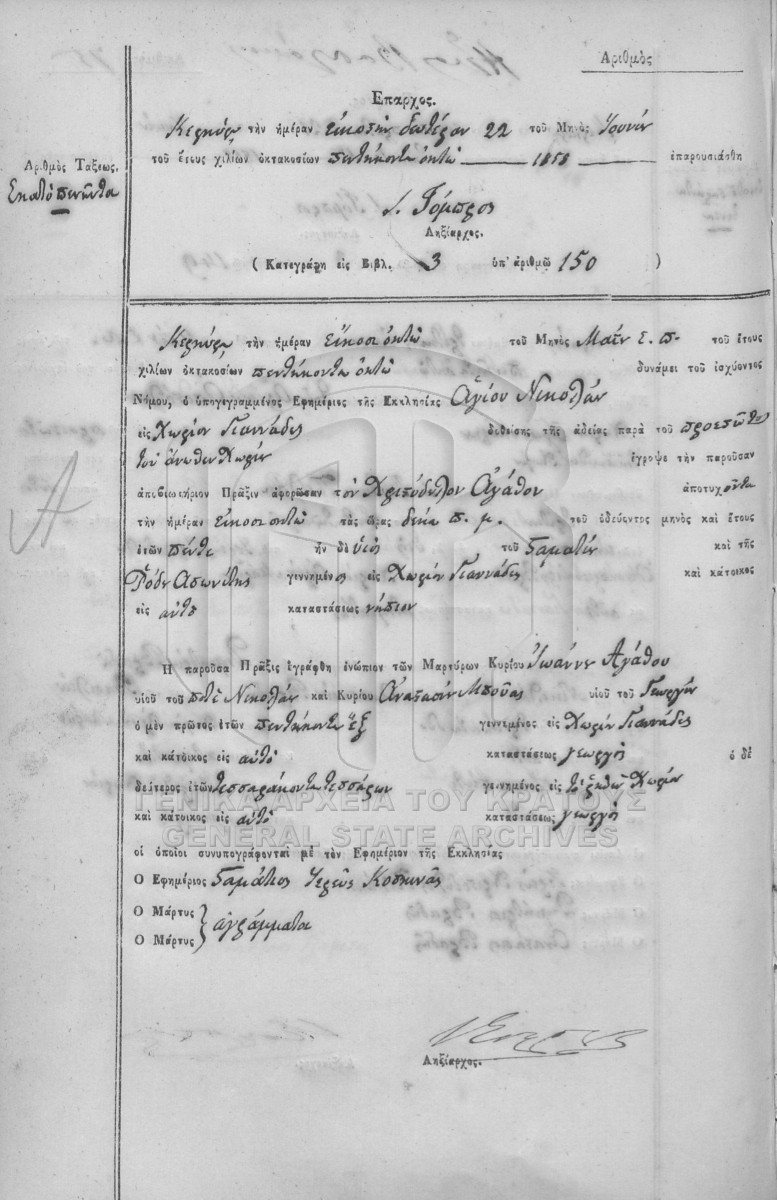 Αριθμὸς
Επαρχος.
Κερκύρᾳ τὴν ἡμέραν εἰκοστὴν δευτέραν 22 τοῦ Μηνὸς Ἰουνίου
τοῦ ἔτους χιλίων ὀκτακοσίων πεντήκοντα ὀκτὼ 1858 ἐπαρουσιάσθη
Αριθμὸς Ταξεως.
Εκατὸ πενῆντα
Ληξίαρχος.
( Κατεγράφη εἰς Βιβλ. 3 ὑπ' ἀριθμῶ 150 )
Κερκύρᾳ τὴν ἡμέραν εἴκοσι ὀκτὼ τοῦ Μηνὸς Μαΐου ε. π. τοῦ ἔτους
χιλίων ὀκτακοσίων πεντήκοντα ὀκτὼ δυνάμει τοῦ ἰσχύοντος
Νόμου, ὁ ὑπογεγραμμένος Εφημέριος τῆς Εκκλησίας Ἁγίου Νικολάου
εἰς Χωρίον Γιαννάδες δοθείσης τῆς ἀδείας παρὰ τοῦ προεστῶτος
τοῦ ἄνωθεν Χωρίου ἔγραψε τὴν παροῦσαν
ἀποβιωτήριον Πρᾶξιν ἀφορῶσαν τὸν Χριστόδουλον Αγάθον ἀποτυχόντα
τὴν ἡμέραν εἴκοσι ὀκτὼ τὰς ὥρας δέκα π. μ. τοῦ ὁδεύοντος μηνὸς καὶ ἔτους
ἐτῶν πέντε ἦν δὲ υἱὸς τοῦ Σταματίου καὶ τῆς
γεννημένος εἰς Χωρίον Γιαννάδες καὶ κάτοικος
εἰς αὐτὸ καταστάσεως νήπιον
Η παροῦσα Πρᾶξις ἐγράφθη ἐνώπιον τῶν Μαρτύρων Κυρίου Ἰωάννου Αγάθου
υἱοῦ τοῦ ποτὲ Νικολάου καὶ Κυρίου Αναστασίου Μπούα υἱοῦ τοῦ Γεωργίου
ὁ μὲν πρῶτος ἐτῶν πεντήκοντα ἕξ γεννημένος εἰς Χωρίον Γιαννάδες
καὶ κάτοικος εἰς αὐτὸ καταστάσεως γεωργὸς ὁ δὲ
δεύτερος ἐτῶν τεσσαράκοντα τεσσάρων γεννημένος εἰς τὸ ῥηθὲν Χωρίον
καὶ κάτοικος εἰς αὐτὸ καταστάσεως γεωργὸς
οἱ ὁποῖοι συνυπογράφονται μὲ τὸν Εφημέριον τῆς Εκκλησίας
Ο Εφημέριος Σταμάτιος Ἱερεὺς Κοσκινᾶς
Ο Μάρτυς
Ο Μάρτυς ἀγράμματοι
Ληξίαρχος.
ΓΕΝΙΚΑ ΑΡΧΕΙΑ ΤΟΥ ΚΡΑΤΟΥΣ
GENERAL STATE ARCHIVES